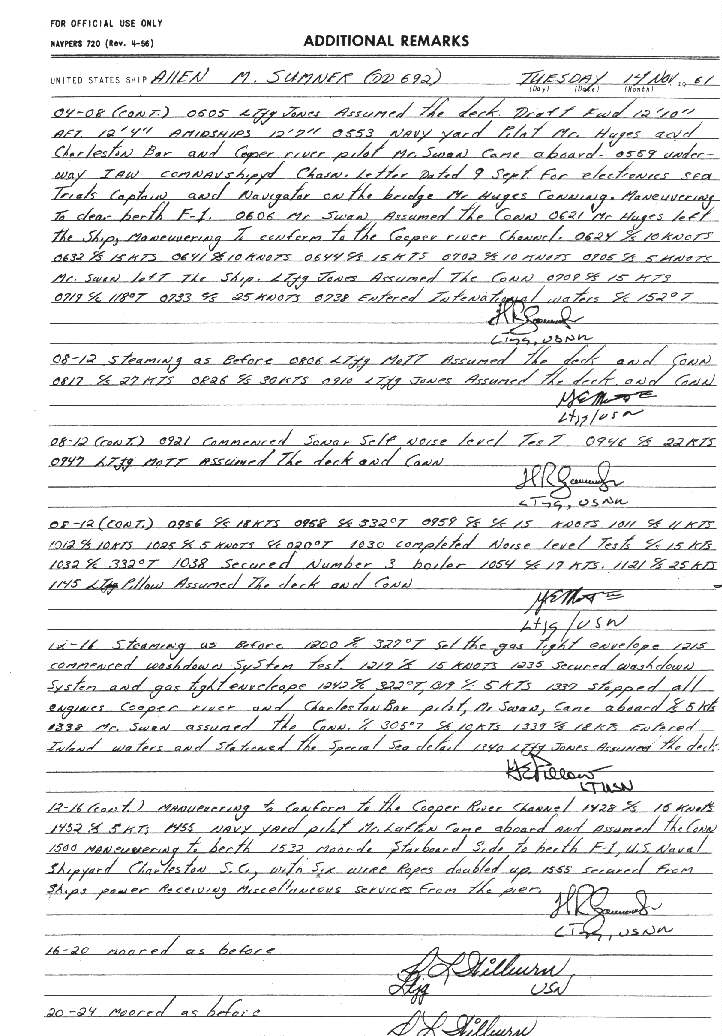 FOR OFFICIAL USE ONLY
NAVPERS 720 (Rev. 4-56)
ADDITIONAL REMARKS
UNITED STATES SHIP Allen M. SUMNER (DD 692) TUESDAY 14 Nov 1961
(Day) (Date) (Month)
04-08 (CONT.) 0605 LTjg Jones Assumed The deck. Draft Fwd 12'10"
AFT. 12'4" AMIDSHIPS 12'7" 0553 NAVY yard Pilot Mr. Huges and
Charleston Bar and Coper river pilot Mr. Swan Came aboard. 0559 under-
way IAW COMNAVShipyd Chasn. Letter Dated 9 Sept For electronics sea
Trials Captain and Navigator on the bridge Mr Huges Conning. Maneuvering
To clear berth F-1. 0606 Mr Swan Assumed The Conn 0621 Mr Huges left
the Ship, Maneuvering To conform to the Cooper river Channel. 0624 C/S 10 KNOTS
0632 C/S 15 KTS 0641 C/S 10 KNOTS 0644 C/S 15 KTS 0702 C/S 10 KNOTS 0705 C/S 5 KNOTS
Mr. Swan left The Ship. LTjg Jones Assumed The Conn 0709 C/S 15 KTS
0719 C/C 118°T 0733 C/S 25 KNOTS 0738 Entered International waters C/C 152°T
LTjg, USNR
08-12 Steaming as Before 0806 LTjg MoTT Assumed The deck and Conn
0817 C/S 27 KTS 0826 C/S 30 KTS 0910 LTjg Jones Assumed The deck and Conn
Ltjg/USN
08-12 (CONT.) 0921 Commenced Sonar Self Noise level TesT 0946 C/S 22 KTS
0947 LTjg MoTT Assumed The deck and Conn
LTjg, USNR
08-12 (CONT.) 0956 C/S 18 KTS 0958 C/C 332°T 0959 C/S 15 KNOTS 1011 C/S 11 KTS
1012 C/S 10 KTS 1025 C/S 5 KNOTS C/C 020°T 1030 completed Noise level Tests C/S 15 KTS
1032 C/C 332°T 1038 Secured Number 3 boiler 1054 C/S 17 KTS. 1121 C/S 25 KTS
1145 LTjg Pillow Assumed The deck and Conn
Ltjg/USN
12-16 Steaming as Before 1200 C/C 327°T Set the gas Tight envelope 1215
commenced washdown System Test. 1217 C/S 15 KNOTS 1235 secured washdown
System and gas tight enveleope 1242 C/C 322°T, 1319 C/S 5 KTS 1337 Stopped all
engines Cooper river and Charleston Bar pilot, Mr Swan, Came aboard C/S 5 Kts
1338 Mr. Swan assumed the Conn. C/C 305°T C/S 10 KTS 1339 C/S 18 KTS Entered
Inland waters and Stationed the Special Sea detail 1340 LTjg Jones Assumed the deck
LTUSN
12-16 (Cont.) Maneuvering to Conform to the Cooper River Channel 1428 C/S 10 Knots
1452 C/S 5 KTS 1455 NAVY yard pilot Mr. Lafton Came aboard and Assumed the Conn
1500 Maneuvering to berth 1532 Moorde Starboard Side to berth F-1, U.S. Naval
Shipyard Charleston S.C., with Six wire Ropes doubled up, 1555 secured From
Ships power Receiving Miscellaneous Services From the pier.
LTjg, USNR
16-20 Moored as before
Ltjg USN
20-24 Moored as before